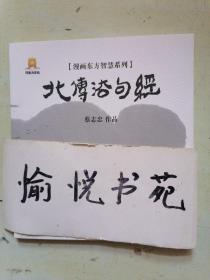 【漫画东方智慧系列】
北傳法句經
蔡志忠 作品
愉悦书苑